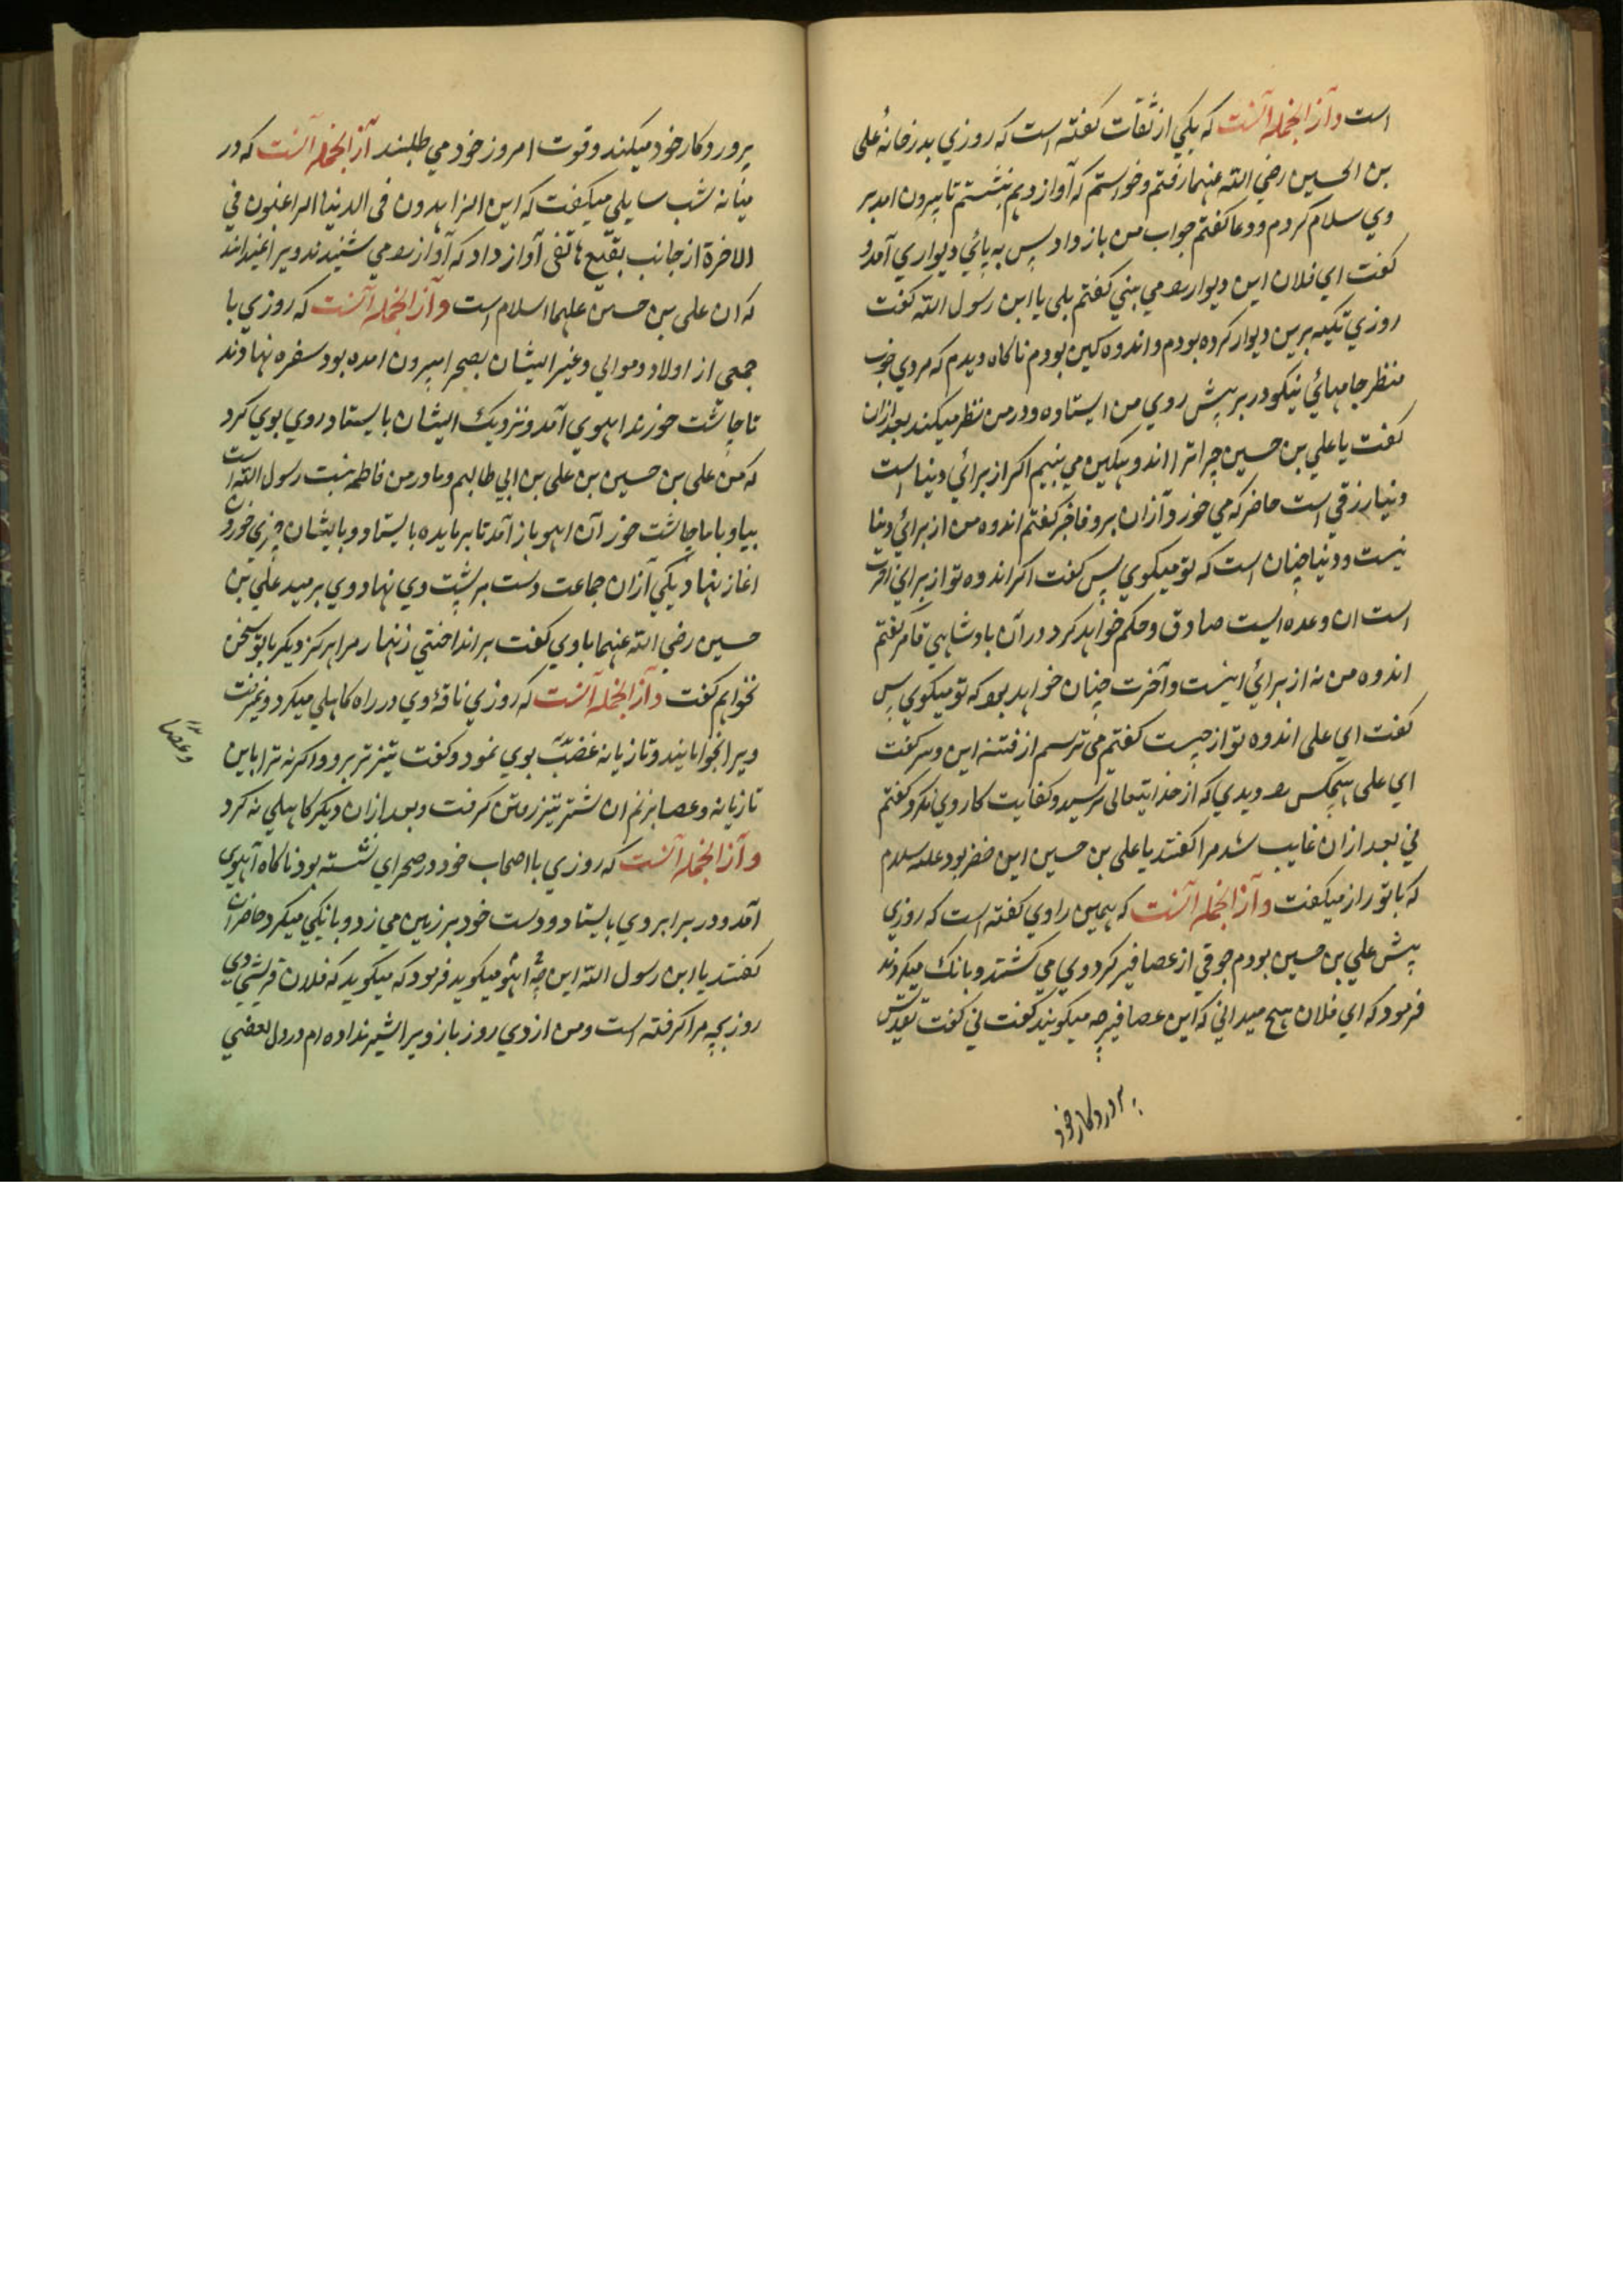 است وآز الجمله آنست که یکي از ثقات کفته است که روزي بدرخانهٔ علی
بن الحسین رضي الله عنهما رفتم وخواستم که آواز دهم بنشستم تا بیرون امد بر
وي سلام کردم ودعا کفتم جواب من باز داد پس به پائي دیواري آمد و
کفت اي فلان این دیوار را مي بیني کفتم بلی یا ابن رسول الله کفت
روزي تکیه برین دیوار کرده بودم واندوه کین بودم ناکاه دیدم که مردي خوب
منظر جامهائي نیکو در بر پیش روي من ایستاده ودر من نظر میکند بعد ازان
کفت یا علي بن حسین چرا ترا اندوهکین مي بینم اکر از برائي دنیا است
دنیا رزقي است حاضر که مي خورد آزان بر وفاجر کفتم اندوه من از برائي دنیا
نیست ودنیا چنان است که تو میکوي پس کفت اکر اندوه تو از براي اخرت
است ان وعده ایست صادق وحکم خواهد کرد در آن بادشاهي قاهر کفتم
اندوه من نه از برائي اینست وآخرت چنان خواهد بود که تو میکوي پس
کفت اي علی اندوه تو از چیست کفتم می ترسم از فتنه این وکفت
اي علی هیچکس را دیدي که از خدایتعالی ترسید وکفایت کار وي نکرد کفتم
ني بعد ازان غایب شد مرا کفتند یا علی بن حسین این خضر بود علیه سلام
که با تو راز میکفت وآز الجمله آنست که همین راوي کفته است که روزي
پیش علي بن حسین بودم جوقي از عصافیر کرد وي مي کشتند وبانک میکردند
فرمود که اي فلان هیچ میداني که این عصافیر چه میکویند کفت ني کفت تقدیس
پروردکار خود
پروردکار خود میکند وقوت امروز خود مي طلبند آز الجمله آنست که در
میانه شب سایلي میکفت که این الزاهدون فی الدنیا الراغبون في
الاخرة از جانب بقیع هاتفی آواز داد که آواز را مي شنیدند ویرا نمیدانند
که ان علی بن حسین علیهما السلام است وآز الجمله آنست که روزي با
جمعي از اولاد وموالي وغیر ایشان بصحرا بیرون امده بود سفره نهادند
تا چاشت خورند اهوي آمد ونزدیک ایشان بایستاد روي بوي کرد
که من علی بن حسین بن علی بن ابي طالبم ومادر من فاطمه بنت رسول الله است
بیا وبا ما چاشت خور آن اهو باز آمد تا بر مایده بایستاد وبایشان چیزي خوردن
اغاز نهاد یکي آزان جماعت دست بر پشت وي نهاد وي برمید علي بن
حسین رضي الله عنهما باوي کفت بر انداختي زنهار مرا هرکز دیکر با تو سخن
نخواهم کفت وآز الجمله آنست که روزي ناقهٔ وي در راه کاهلي میکرد ونمیرفت
ویرا بخوابانید وتازیانه وعصا بوي نمود وکفت تیزتر برو واکر نه ترا باین
تازیانه وعصا بزنم ان شتر تیز رفتن کرفت وبعد ازان دیکر کاهلي نه کرد
وآز الجمله آنست که روزي با اصحاب خود در صحراي نشسته بود ناکاه آهوي
آمد ودر برابر وي بایستاد ودست خود بر زمین مي زد وبانکي میکرد حاضران
کفتند یا ابن رسول الله این چه اهو میکوید فرمود که میکوید که فلان قریشي دي
روز بچه مرا کرفته است ومن از دي روز باز ویرا شیر نداده ام در دل بعضي
وعصا